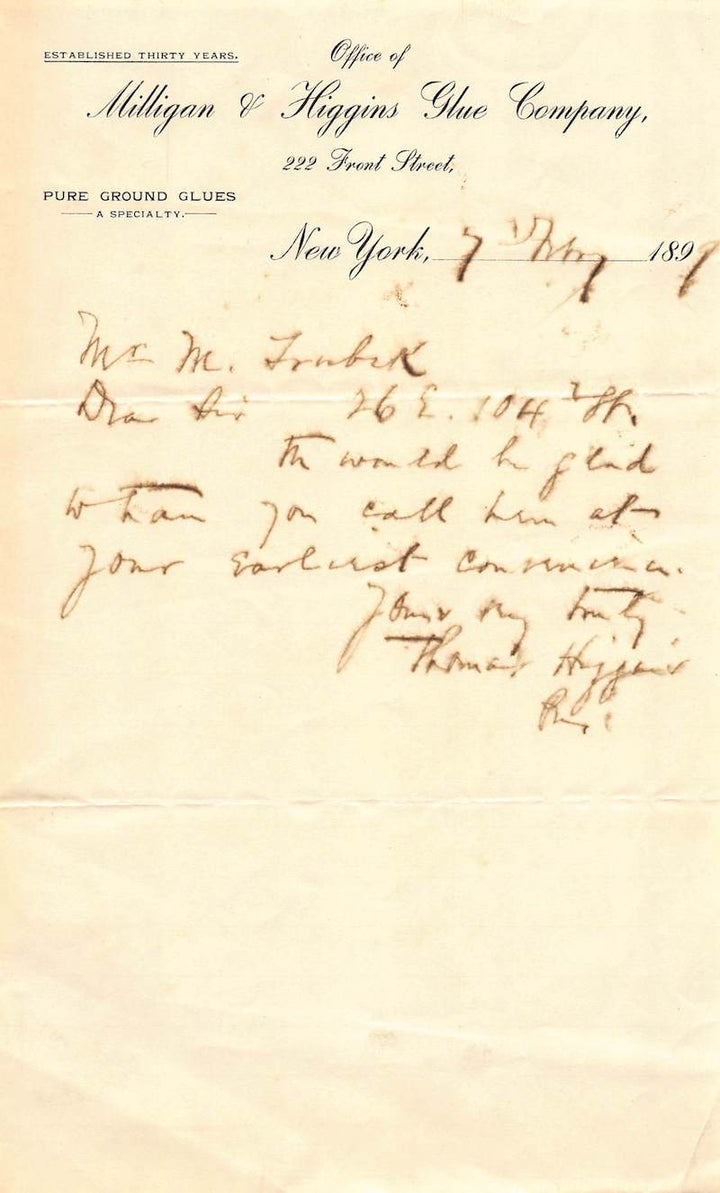 ESTABLISHED THIRTY YEARS.
Office of
Milligan & Higgins Glue Company,
222 Front Street,
PURE GROUND GLUES
A SPECIALTY.
New York, 7 Feby 1899
Mr M. Trubek
Dear Sir 26 E. 104 St.
would be glad
to have you call here at
your earliest convenience.
Yours very truly
Thomas Higgins